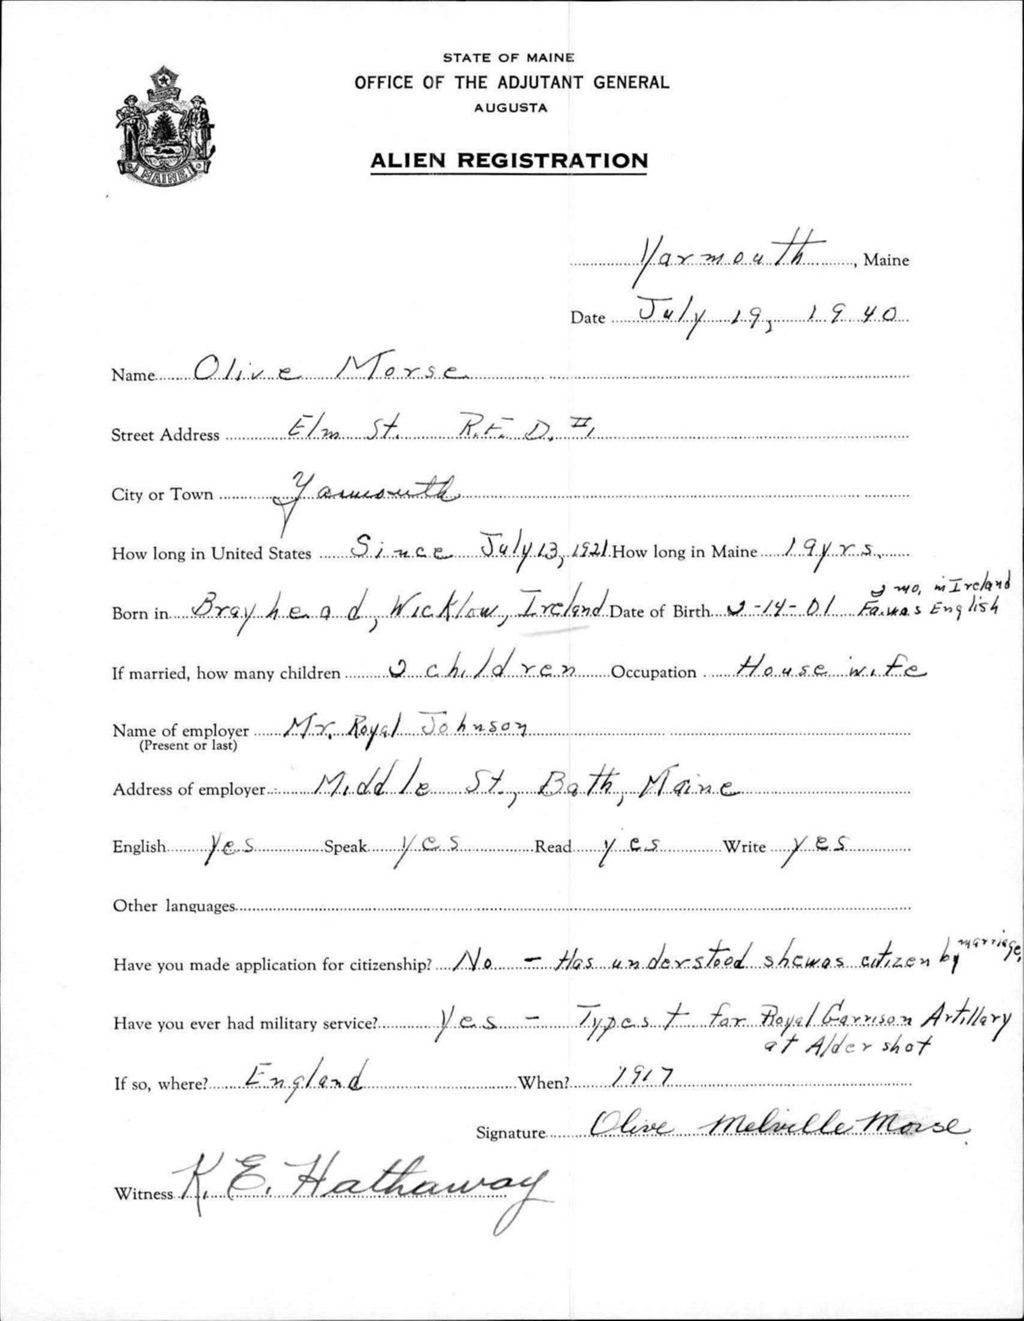 STATE OF MAINE
OFFICE OF THE ADJUTANT GENERAL
AUGUSTA
MAINE
ALIEN REGISTRATION
Yarmouth, Maine
Date July 19, 1940
Name Olive Morse
Street Address Elm St. R.F.D. #1
City or Town Yarmouth
How long in United States Since July 13, 1921 How long in Maine 19 yrs.
2 mo. in Ireland
Born in Brayhead, Wicklow, Ireland Date of Birth 2-14-01 Fa. was English
If married, how many children 2 children Occupation Housewife
Name of employer Mr. Royal Johnson
(Present or last)
Address of employer Middle St., Bath, Maine
English yes Speak yes Read yes Write yes
Other languages
Have you made application for citizenship? No - Has understood she was citizen by marriage.
Have you ever had military service? Yes - Typest for Royal Garrison Artillary
at Aldershot
If so, where? England When? 1917
Signature Olive Melville Morse
Witness K. E. Hathaway